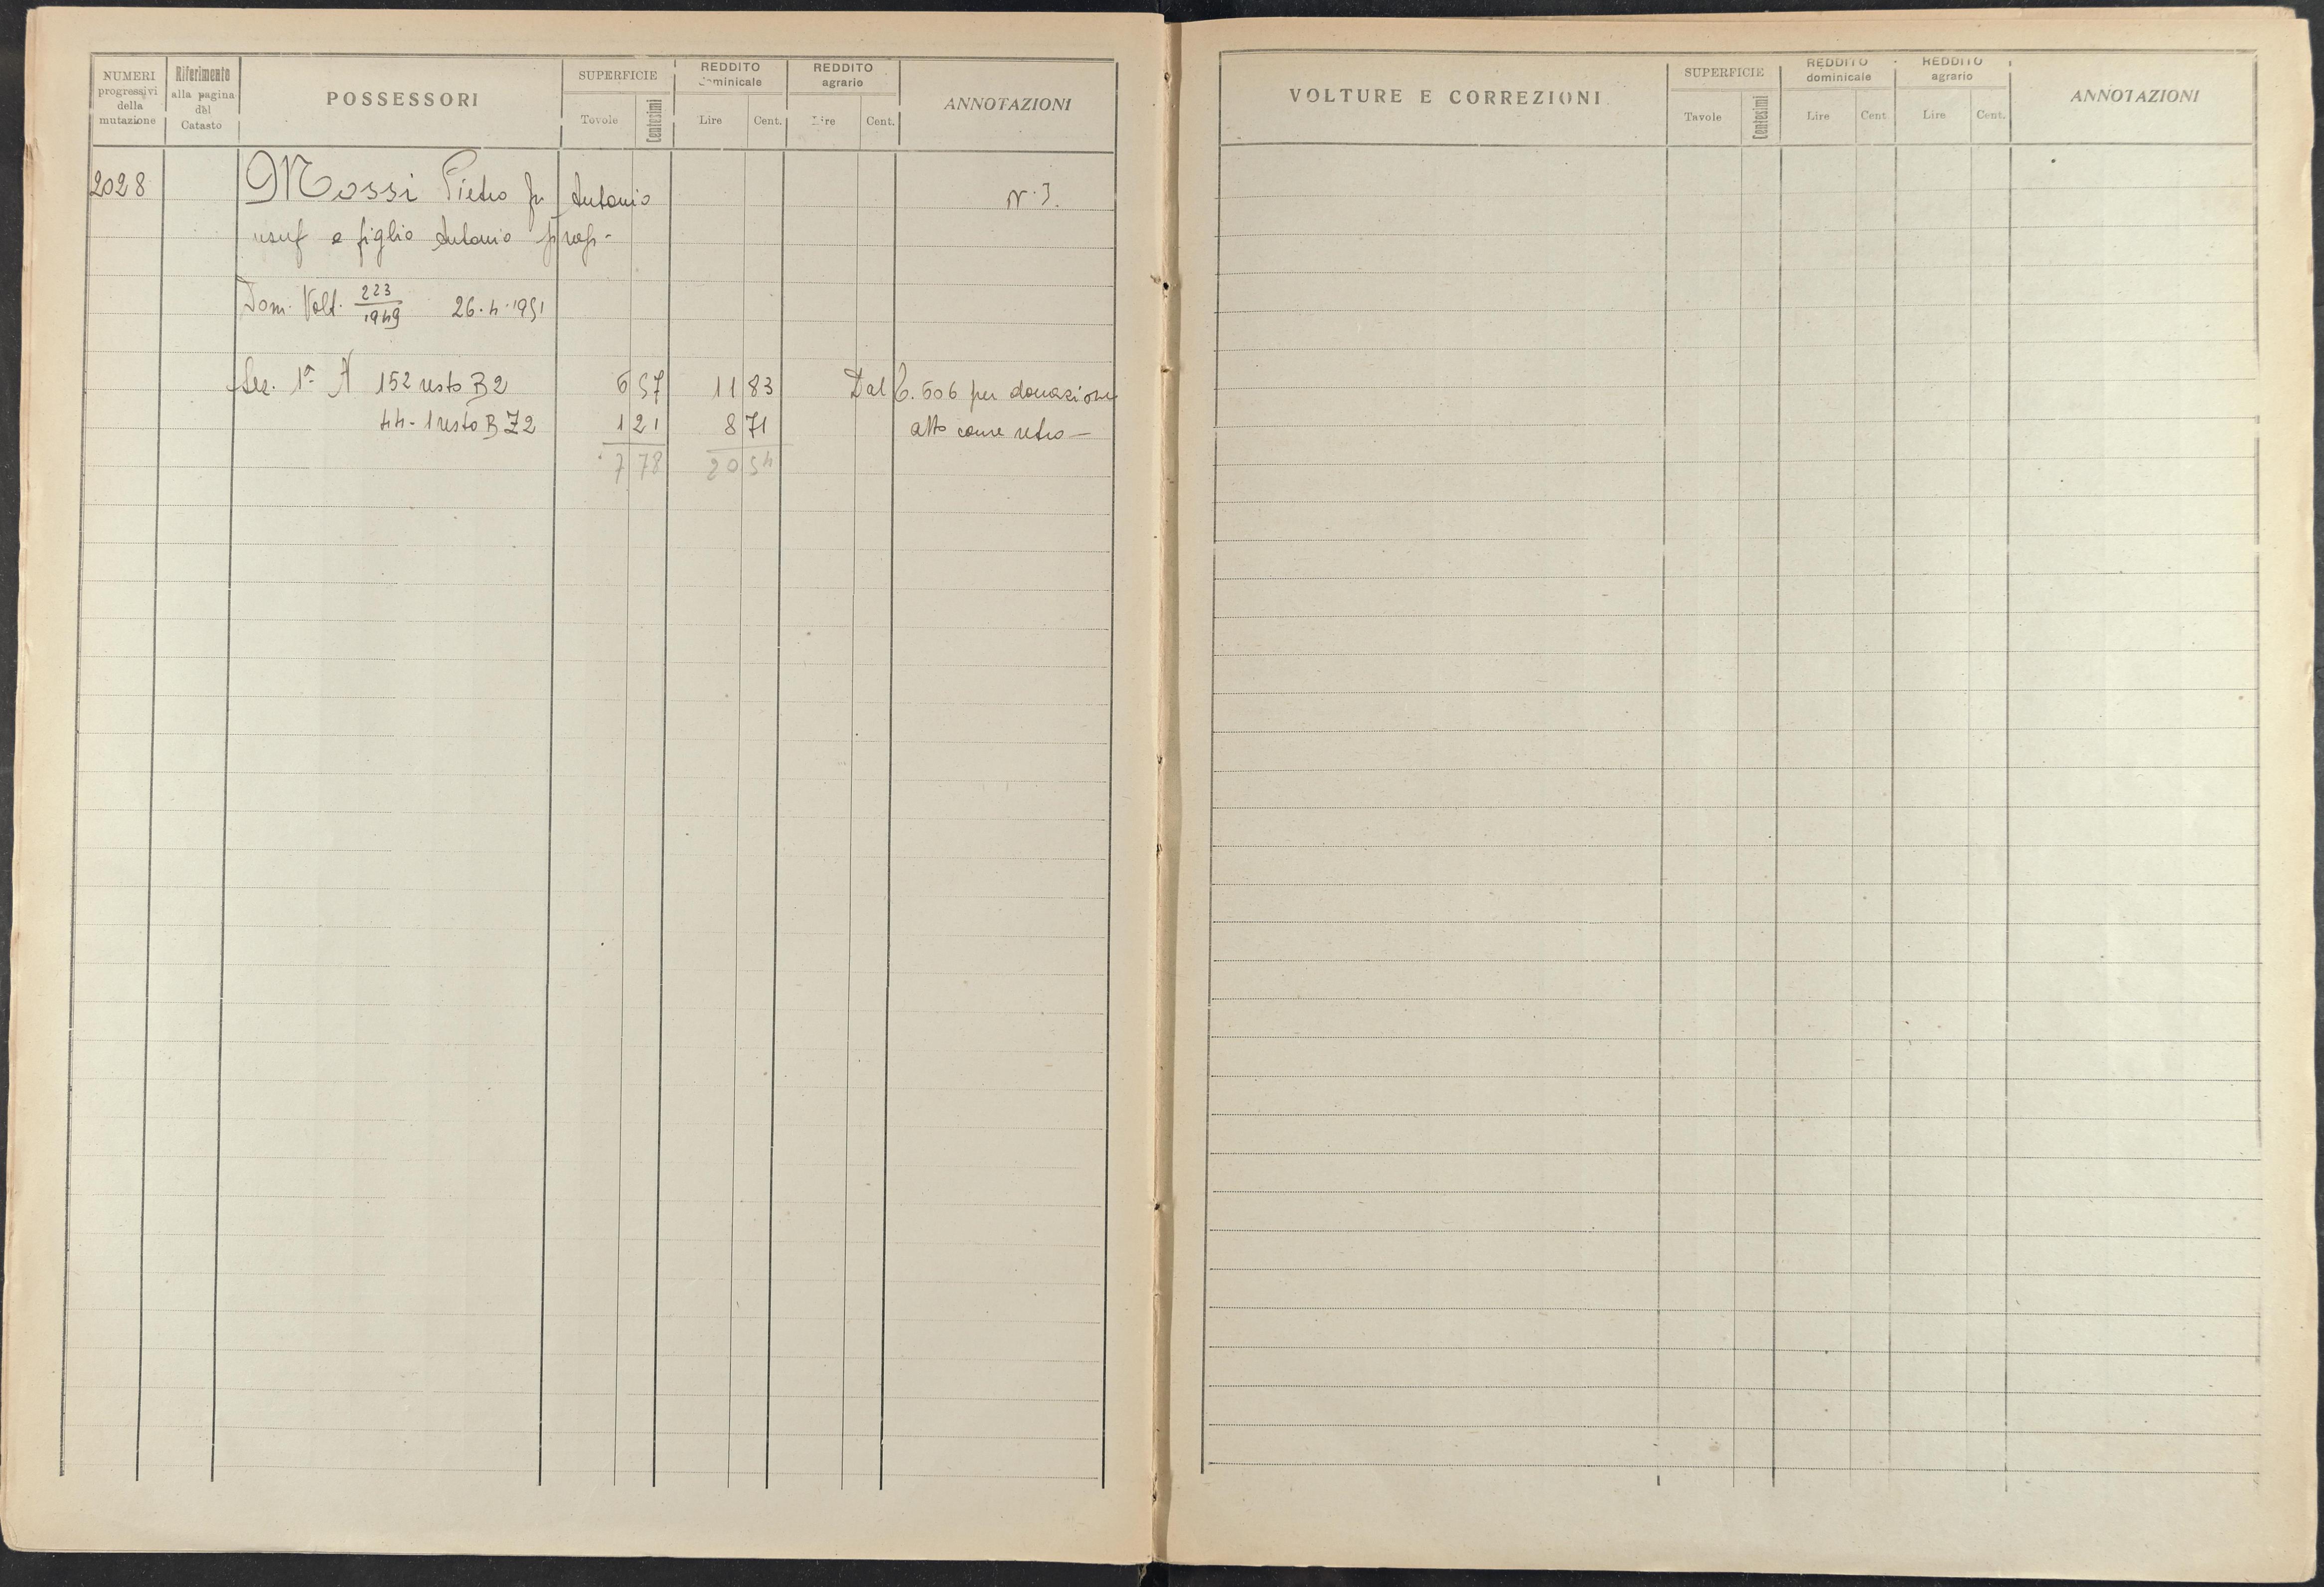 NUMERI progressivi della mutazione
Riferimento alla pagina del Catasto
POSSESSORI
SUPERFICIE
Tavole
Centesimi
REDDITO dominicale
Lire
Cent.
REDDITO agrario
Lire
Cent.
ANNOTAZIONI
2028 Mossi Pietro fu Antonio N. 3.
usuf e figlio Antonio prop-
Dom. Volt. 223/1949 26.4.1951
Sez. 1ª A 152 resto B2 6 57 11 83 Dal C. 606 per donazione
44-1 resto B Z2 1 21 8 71 atto come retro —
7 78 20 54
VOLTURE E CORREZIONI
SUPERFICIE
Tavole
Centesimi
REDDITO dominicale
Lire
Cent
REDDITO agrario
Lire
Cent.
ANNOTAZIONI